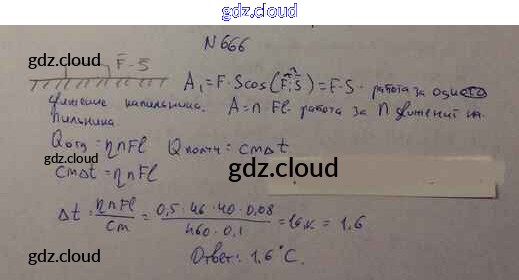 gdz.cloud
N 666
gdz.cloud
F - S
A₁ = F·S cos(F;S) = F·S - работа за одно
gdz.cloud
движение напильника. A = n·Fl - работа за n движений на-
пильника.
Qотд = ηnFl Qполуч = cmΔt
cmΔt = ηnFl
gdz.cloud
Δt = ηnFl/cm = 0,5·46·40·0,08/460·0,1 = 1,6К = 1,6
gdz.cloud
gdz.cloud
Ответ: 1,6°C.